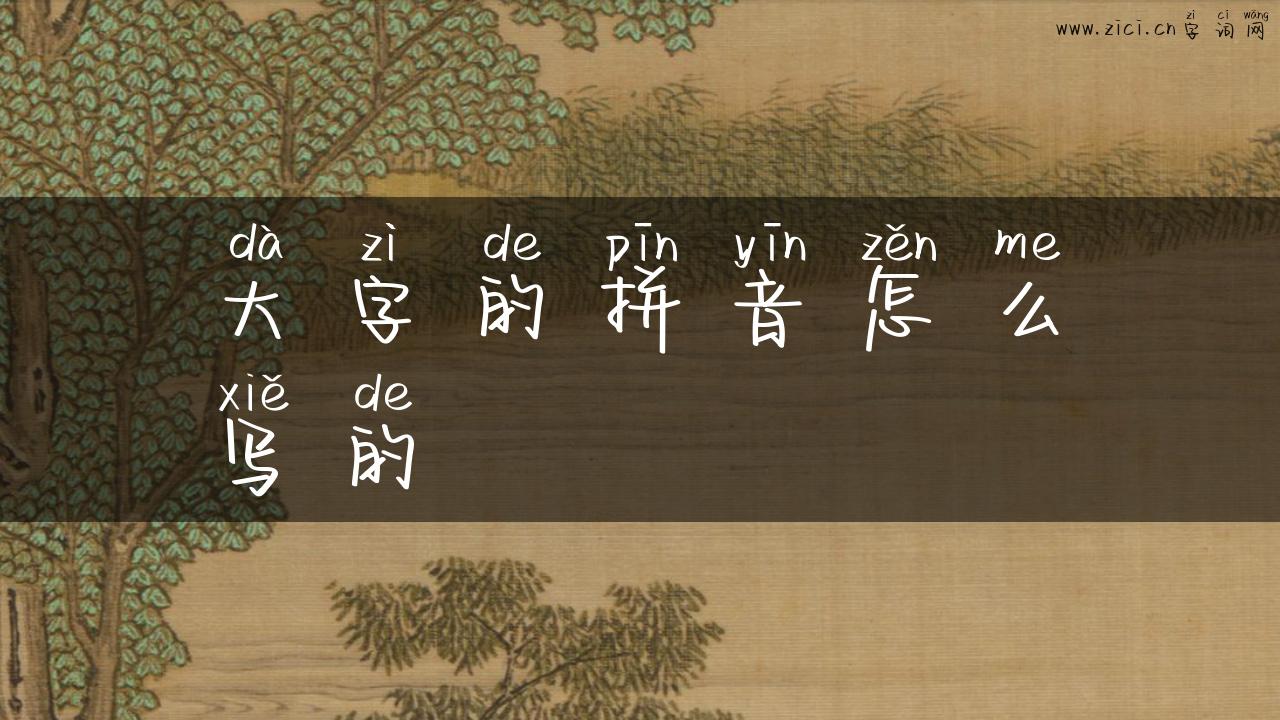 zì cí wǎng
www.zici.cn字词网
dà zì de pīn yīn zěn me
大字的拼音怎么
xiě de
写的